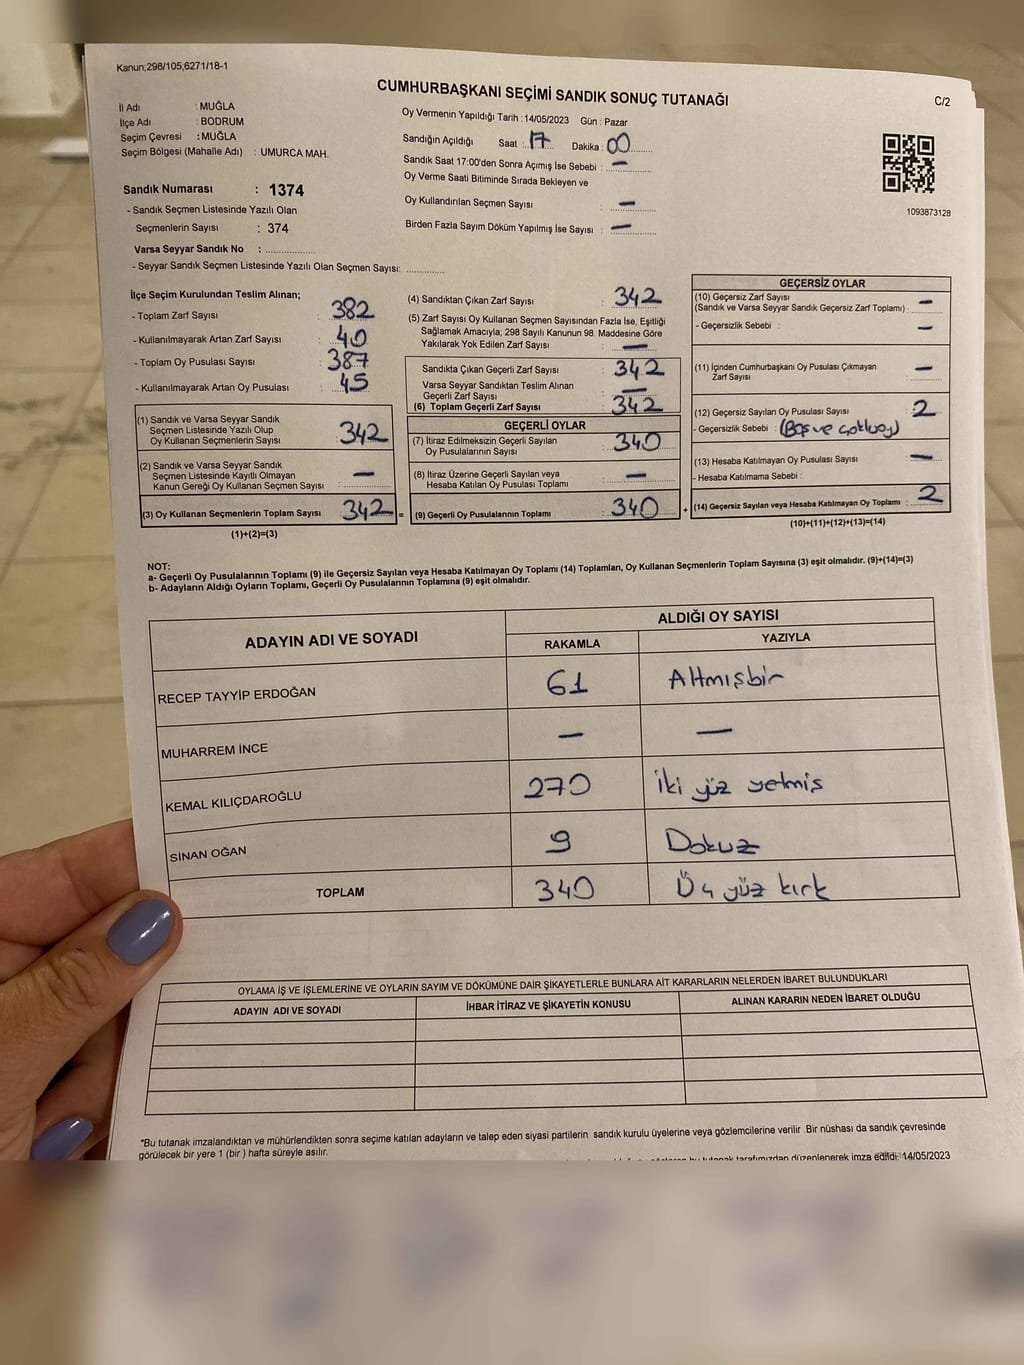 Kanun;298/105;6271/18-1
CUMHURBAŞKANI SEÇİMİ SANDIK SONUÇ TUTANAĞI
C/2
İl Adı : MUĞLA
İlçe Adı : BODRUM
Seçim Çevresi : MUĞLA
Seçim Bölgesi (Mahalle Adı) : UMURCA MAH.
Oy Vermenin Yapıldığı Tarih : 14/05/2023 Gün : Pazar
Sandığın Açıldığı Saat : 17 Dakika : 00
Sandık Saat 17:00'den Sonra Açımış İse Sebebi : —
Oy Verme Saati Bitiminde Sırada Bekleyen ve
Oy Kullandırılan Seçmen Sayısı : —
Birden Fazla Sayım Döküm Yapılmış İse Sayısı : —
1093873128
Sandık Numarası : 1374
- Sandık Seçmen Listesinde Yazılı Olan
Seçmenlerin Sayısı : 374
Varsa Seyyar Sandık No : ..............
- Seyyar Sandık Seçmen Listesinde Yazılı Olan Seçmen Sayısı: ............
İlçe Seçim Kurulundan Teslim Alınan;
- Toplam Zarf Sayısı : 382
- Kullanılmayarak Artan Zarf Sayısı : 40
- Toplam Oy Pusulası Sayısı : 387
- Kullanılmayarak Artan Oy Pusulası : 45
(1) Sandık ve Varsa Seyyar Sandık
Seçmen Listesinde Yazılı Olup
Oy Kullanan Seçmenlerin Sayısı : 342
(2) Sandık ve Varsa Seyyar Sandık
Seçmen Listesinde Kayıtlı Olmayan
Kanun Gereği Oy Kullanan Seçmen Sayısı : —
(3) Oy Kullanan Seçmenlerin Toplam Sayısı : 342 =
(1)+(2)=(3)
(4) Sandıktan Çıkan Zarf Sayısı : 342
(5) Zarf Sayısı Oy Kullanan Seçmen Sayısından Fazla İse, Eşitliği
Sağlamak Amacıyla; 298 Sayılı Kanunun 98. Maddesine Göre
Yakılarak Yok Edilen Zarf Sayısı : —
Sandıkta Çıkan Geçerli Zarf Sayısı : 342
Varsa Seyyar Sandıktan Teslim Alınan
Geçerli Zarf Sayısı : —
(6) Toplam Geçerli Zarf Sayısı : 342
GEÇERLİ OYLAR
(7) İtiraz Edilmeksizin Geçerli Sayılan
Oy Pusulalarının Sayısı : 340
(8) İtiraz Üzerine Geçerli Sayılan veya
Hesaba Katılan Oy Pusulası Toplamı : —
(9) Geçerli Oy Pusulalarının Toplamı : 340 +
GEÇERSİZ OYLAR
(10) Geçersiz Zarf Sayısı
(Sandık ve Varsa Seyyar Sandık Geçersiz Zarf Toplamı) : —
- Geçersizlik Sebebi : —
(11) İçinden Cumhurbaşkanı Oy Pusulası Çıkmayan
Zarf Sayısı : —
(12) Geçersiz Sayılan Oy Pusulası Sayısı : 2
- Geçersizlik Sebebi : (Boş ve çokluoy)
(13) Hesaba Katılmayan Oy Pusulası Sayısı : —
- Hesaba Katılmama Sebebi :
(14) Geçersiz Sayılan veya Hesaba Katılmayan Oy Toplamı : 2
(10)+(11)+(12)+(13)=(14)
NOT:
a- Geçerli Oy Pusulalarının Toplamı (9) ile Geçersiz Sayılan veya Hesaba Katılmayan Oy Toplamı (14) Toplamları, Oy Kullanan Seçmenlerin Toplam Sayısına (3) eşit olmalıdır. (9)+(14)=(3)
b- Adayların Aldığı Oyların Toplamı, Geçerli Oy Pusulalarının Toplamına (9) eşit olmalıdır.
ADAYIN ADI VE SOYADI
ALDIĞI OY SAYISI
RAKAMLA YAZIYLA
RECEP TAYYİP ERDOĞAN 61 Altmışbir
MUHARREM İNCE — —
KEMAL KILIÇDAROĞLU 270 İki yüz yetmiş
SİNAN OĞAN 9 Dokuz
TOPLAM 340 Üç yüz kırk
OYLAMA İŞ VE İŞLEMLERİNE VE OYLARIN SAYIM VE DÖKÜMÜNE DAİR ŞİKAYETLERLE BUNLARA AİT KARARLARIN NELERDEN İBARET BULUNDUKLARI
ADAYIN ADI VE SOYADI İHBAR İTİRAZ VE ŞİKAYETİN KONUSU ALINAN KARARIN NEDEN İBARET OLDUĞU
*Bu tutanak imzalandıktan ve mühürlendikten sonra seçime katılan adayların ve talep eden siyasi partilerin sandık kurulu üyelerine veya gözlemcilerine verilir .Bir nüshası da sandık çevresinde
görülecek bir yere 1 (bir ) hafta süreyle asılır.
bu tutanak tarafımızdan düzenlenerek imza edildi. 14/05/2023